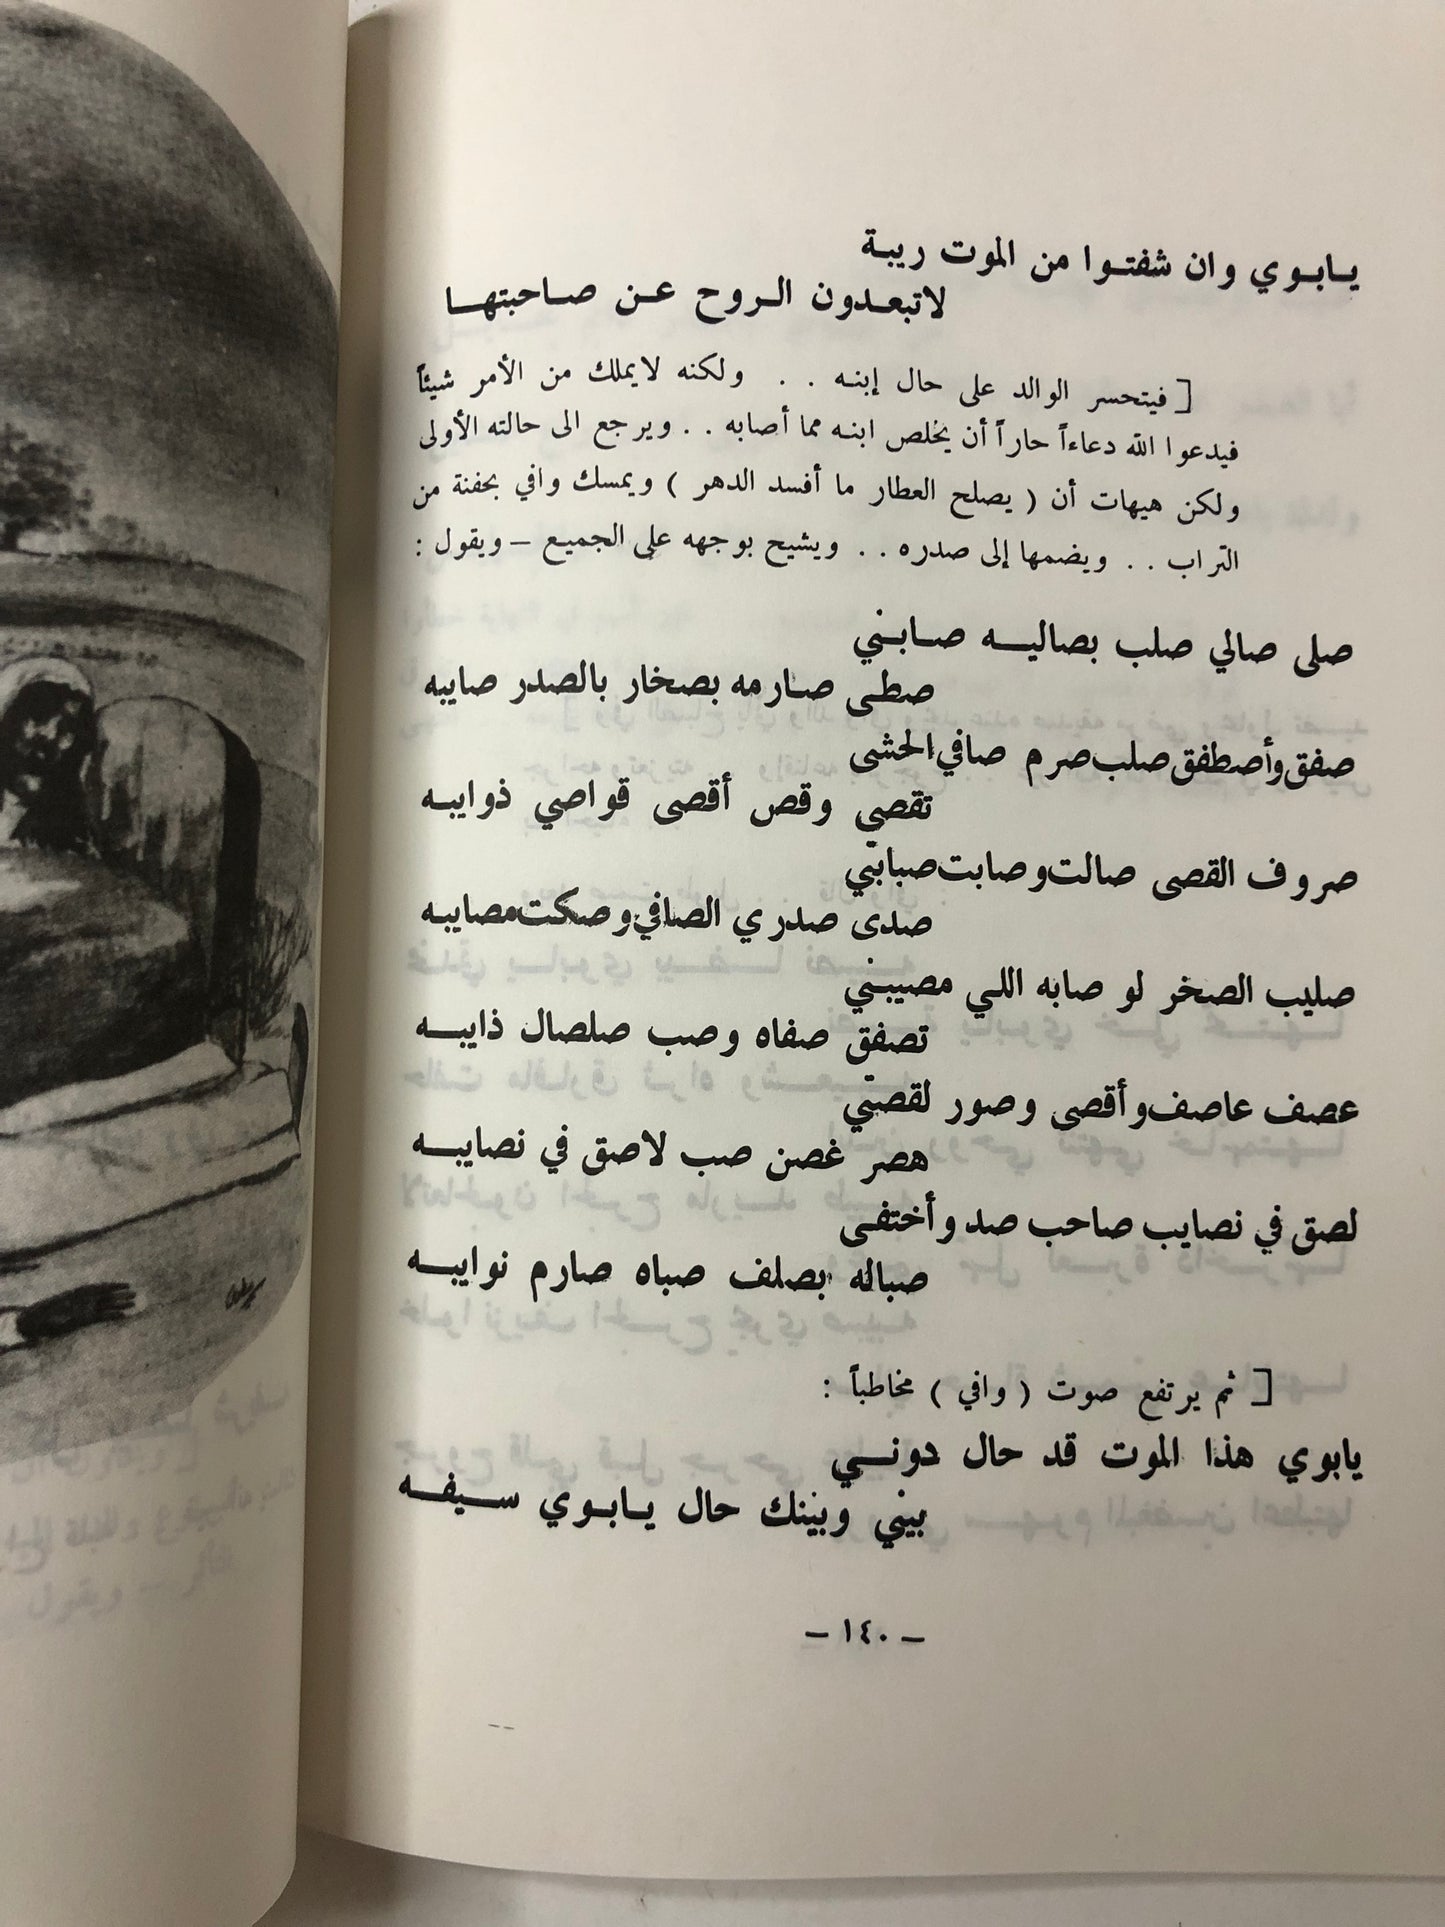 يـابـوي وان شفتـوا من الموت ريبـة
لاتبعـدون الـروح عـن صـاحبتهـا
[ فيتحسر الوالد على حال إبنـه . . ولكنه لايملك من الأمر شيئاً
فيدعوا الله دعاءاً حاراً أن يخلص ابنـه مما أصابه . . ويرجع الى حالته الأولى
ولكن هيهات أن ( يصلح العطار ما أفسد الدهر ) ويمسك وافي بحفنة من
التراب . . ويضمها إلى صدره . . ويشيح بوجهه على الجميع – ويقول :
صلى صالي صلب بصاليـه صـابـني
صطـى صـارمه بصخار بالصدر صايبه
صفق وأصطفق صلب صرم صافي الحشى
تقصي وقص أقصى قواصي ذوايبـه
صروف القصى صالت وصابت صبابتي
صدى صدري الصافي وصكت مصايبـه
صليب الصخر لو صابه اللـي مصيبـني
تصفق صفاه وصب صلصال ذايبـه
عصف عاصف وأقصى وصور لقصتي
هصر غصن صب لاصق في نصايبـه
لصق في نصايب صاحب صد وأختفـى
صباله بصلف صباه صارم نوايبـه
[ ثم يرتفع صوت ( وافي ) مخاطباً :
يابوي هذا الموت قد حال دونـي
بيني وبينك حال يـابـوي سـيفـه
– ١٤٠ –